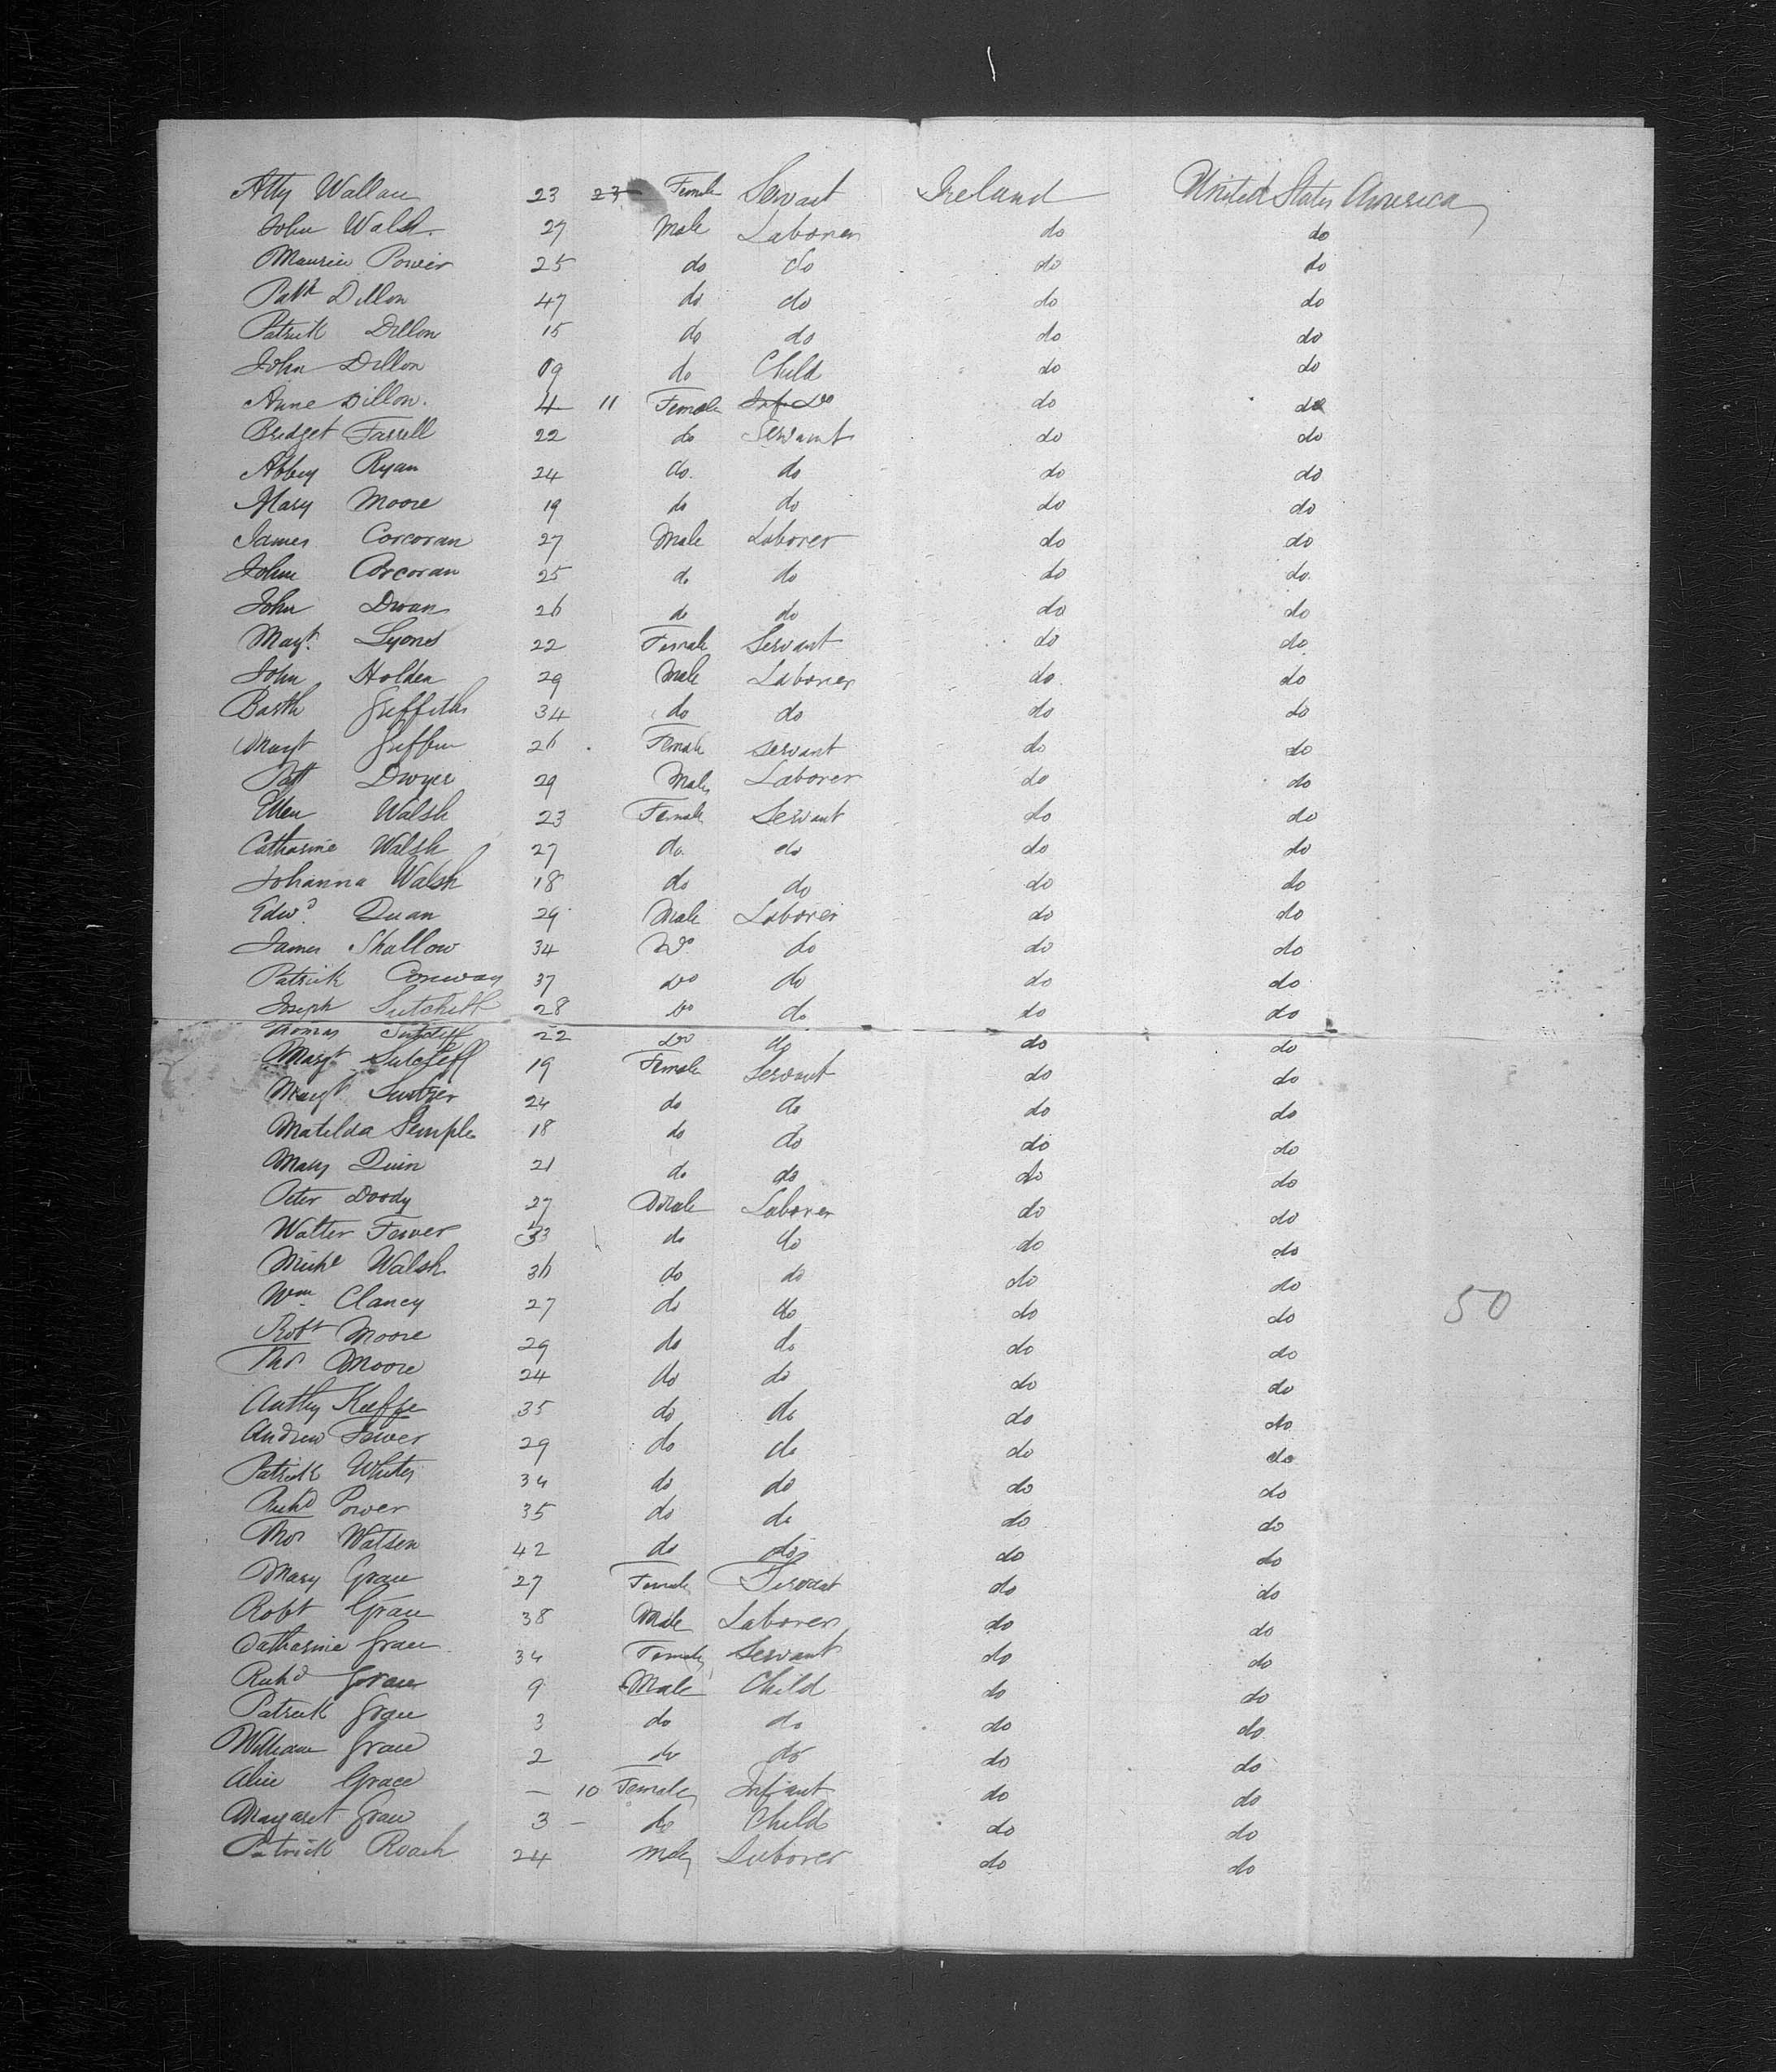 Atty Wallace 23 23 Female Servant Ireland United States America
John Walsh 27 Male Laborer do do
Maurice Power 25 do do do do
Patk Dillon 47 do do do do
Patrick Dillon 15 do do do do
John Dillon 09 do Child do do
Anne Dillon 4 11 Female Inf Do do do
Bridget Farrell 22 do Servant do do
Abbey Ryan 24 do do do do
Mary Moore 19 do do do do
James Corcoran 27 Male Laborer do do
John Corcoran 25 do do do do
John Dwan 26 do do do do
Magt. Lyons 22 Female Servant do do
John Holden 29 Male Laborer do do
Barth Griffiths 34 do do do do
Magt Griffin 26 Female servant do do
Patt Dwyer 29 Male Laborer do do
Ellen Walsh 23 Female Servant do do
Catharine Walsh 27 do do do do
Johanna Walsh 18 do do do do
Edwd. Quan 29 Male Laborer do do
James Shallow 34 Do do do do
Patrick Conway 37 Do do do do
Joseph Sutcheff 28 Do do do do
Thomas Sutcliff 22 Do do do do
Margt Sutcleff 19 Female Servant do do
Margt 24 do do do do
Matilda Semple 18 do do do do
Mary Quin 21 do do do do
Peter Doody 27 Male Laborer do do
Walter Power 33 do do do do
Michl Walsh 36 do do do do
Wm Clancy 27 do do do do
50
Robt Moore 29 do do do do
Thos Moore 24 do do do do
Anthy Keeffe 35 do do do do
Andrew Power 29 do do do do
Patrick White 34 do do do do
Richd Power 35 do do do do
Thos Watson 42 do do do do
Mary Grace 27 Female Servant do do
Robt Grace 38 Male Laborer do do
Catharine Grace 34 Female Servant do do
Richd Grace 9 Male Child do do
Patrick Grace 3 do do do do
William Grace 2 do do do do
Alice Grace — 10 Female Infant do do
Margaret Grace 3 — do Child do do
Patrick Roach 24 Male Laborer do do